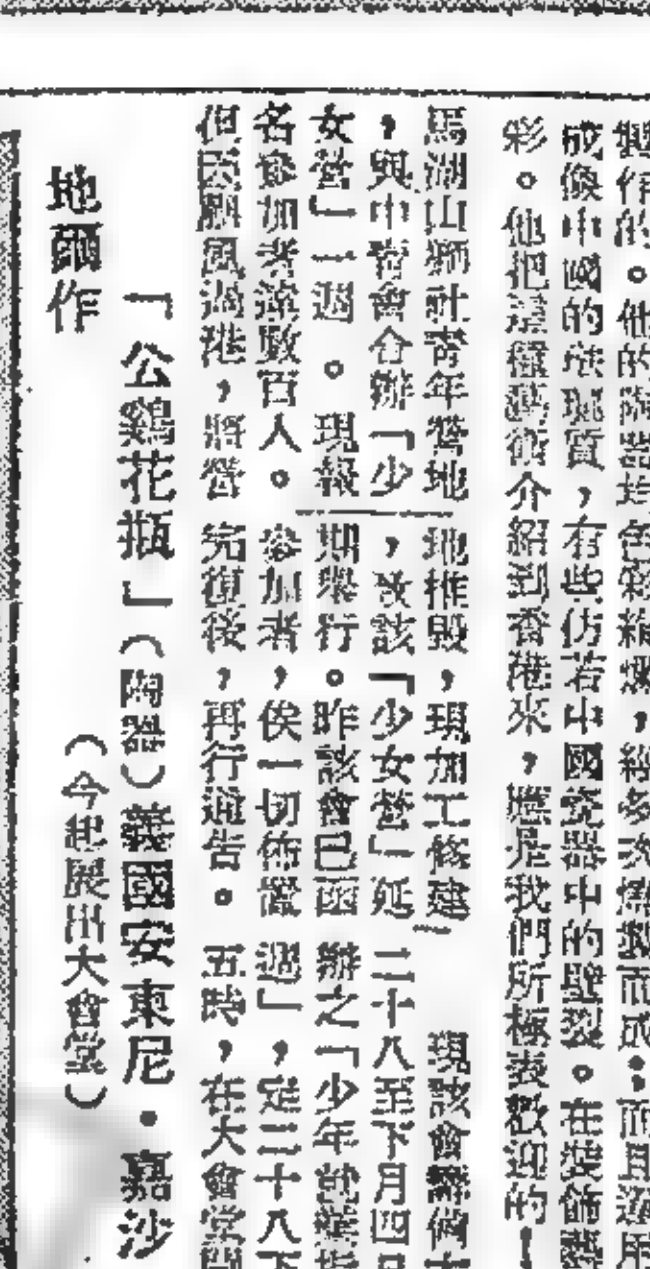 製作的。他的陶器均色彩絢爛，經多次燒製而成；而且還用
成像中國的玻璃質，有些仿若中國瓷器中的璺裂。在裝飾藝
彩。他把這種藝術介紹到香港來，應是我們所極表歡迎的！
馬湖山獅社青年營地
，與中青會合辦「少
女營」一週。現報
名參加者達數百人。
但因颶風過港，將營
地摧毀，現加工修建
，致該「少女營」延
期舉行。昨該會已函
參加者，俟一切佈置
完復後，再行通告。
現該會籌備
二十八至下月四日
辦之「少年就業指
週」，定二十八下
五時，在大會堂開
「公鷄花瓶」（陶器）義國安東尼・嘉沙
地爾作
（今起展出大會堂）